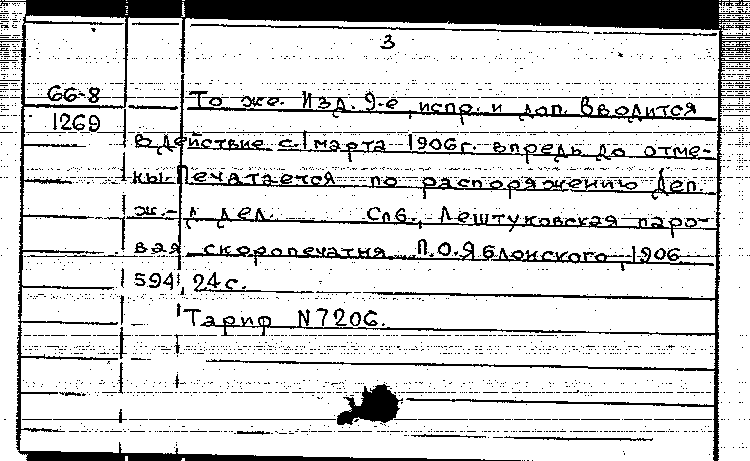 3
66-8
1269
То же. Изд. 9-е, испр. и доп. Вводится
в действие с 1 марта 1906 г. впредь до отме-
ны. Печатается по распоряжению Деп.
ж.-д дел. Спб., Лештуковская паро-
вая скоропечатня П.О.Яблонского, 1906
594, 24 с.
Тариф N 7206.